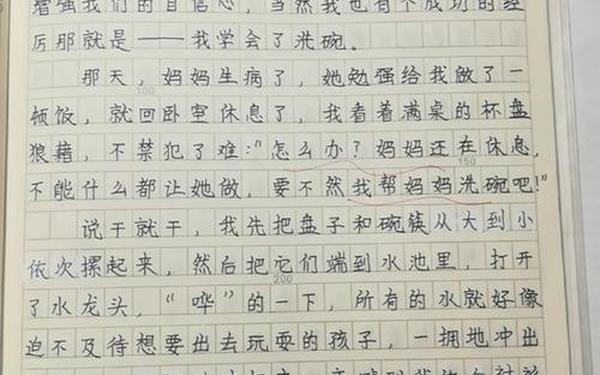 增强我们的自信心，当然我也有个成功的经
历那就是——我学会了洗碗。
那天，妈妈生病了，她勉强给我做了一
顿饭，就回卧室休息了，我看着满桌的杯盘
狼藉，不禁犯了难：“怎么办？妈妈还在休息，
不能什么都让她做，要不然我帮妈妈洗碗吧！”
150
说干就干，我先把盘子和碗筷从大到小
依次摞起来，然后把它们端到水池里，打开
200
了水龙头，“哗”的一下，所有的水就好像
迫不及待想要出去玩耍的孩子，一拥地冲出